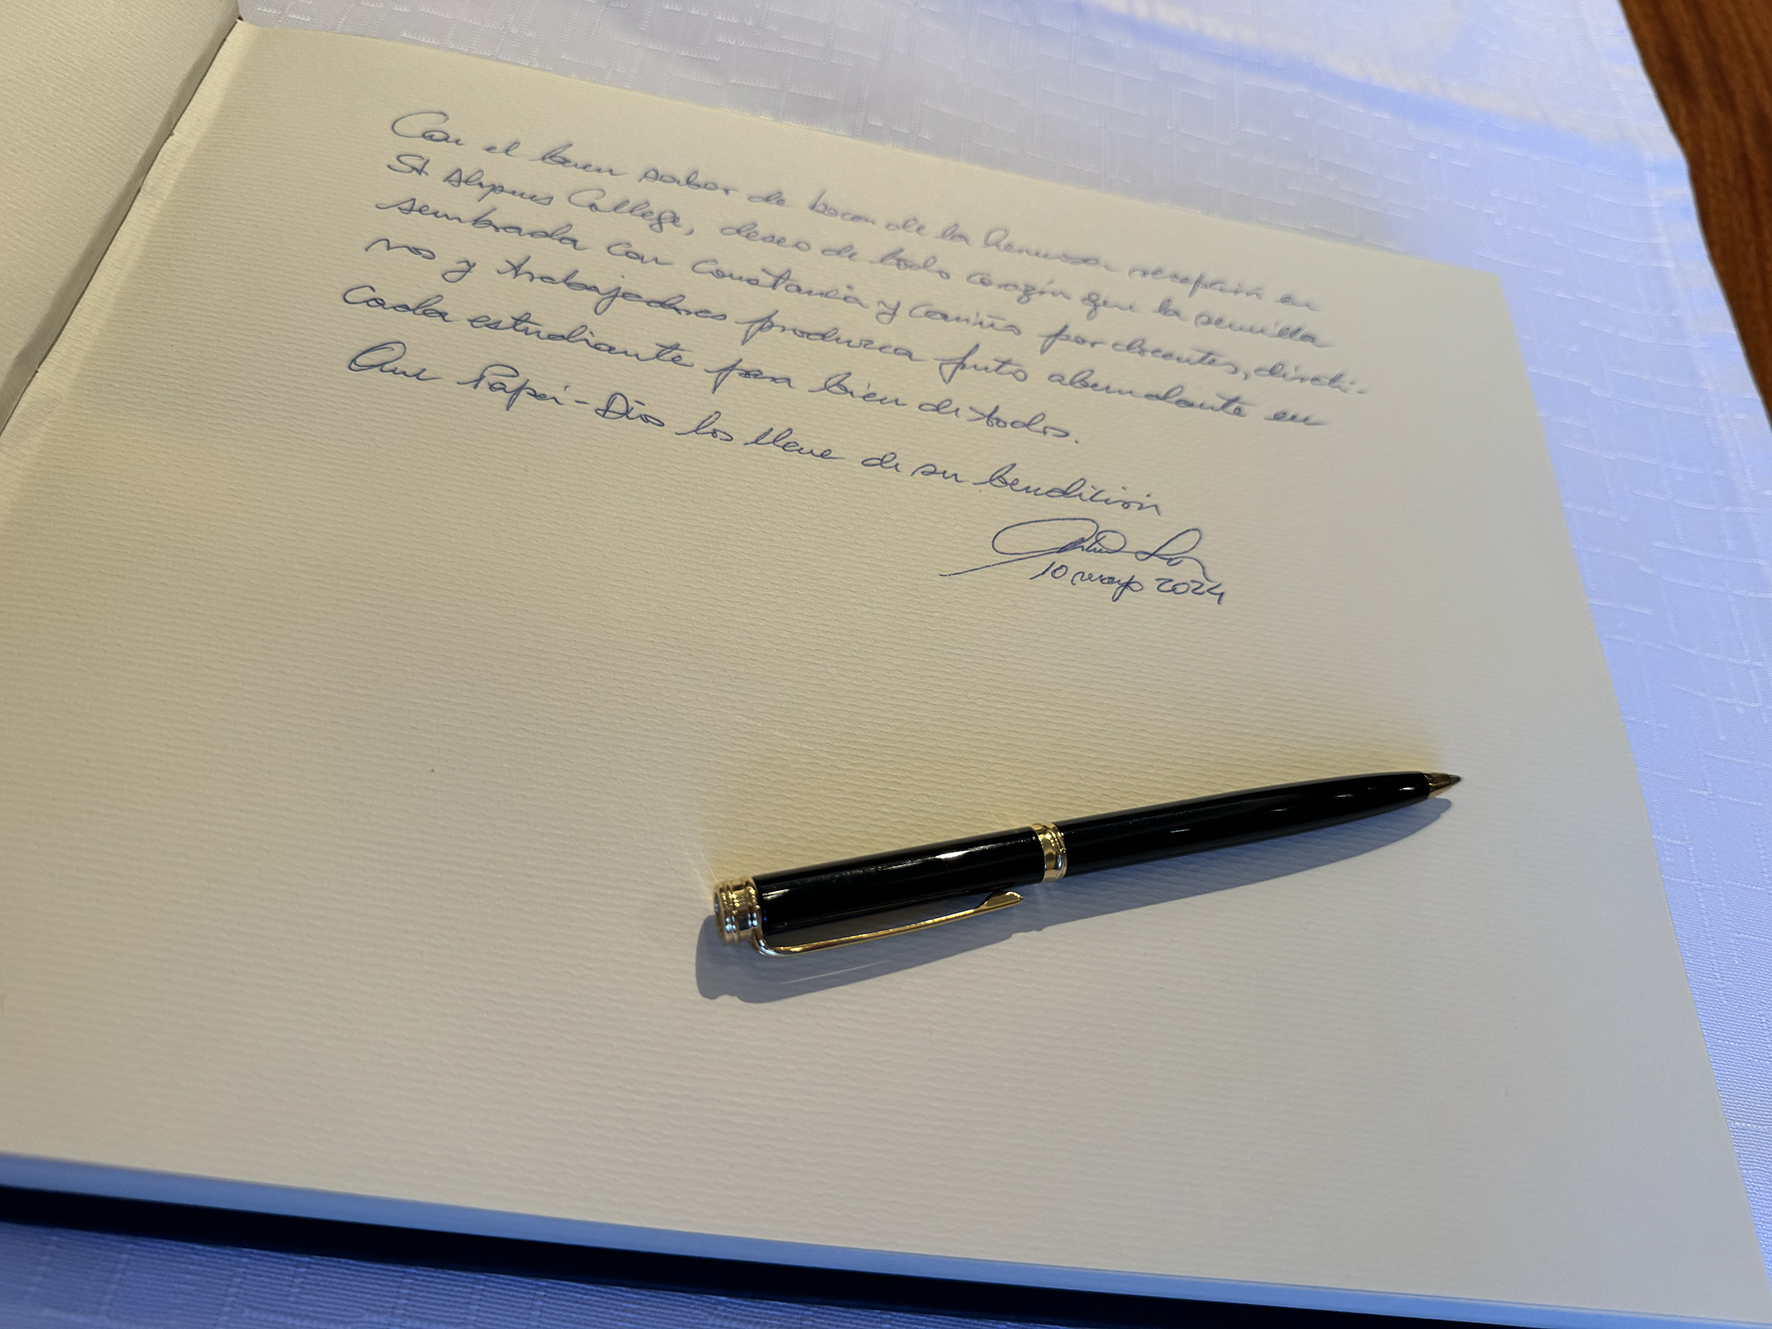 Con el buen sabor de boca de la hermosa recepción en
St Alypius College, deseo de todo corazón que la semilla
sembrada con constancia y cariño por docentes, directi-
vos y trabajadores produzca fruto abundante en
cada estudiante para bien de todos.
Que Papá-Dios los llene de su bendición
10 mayo 2024